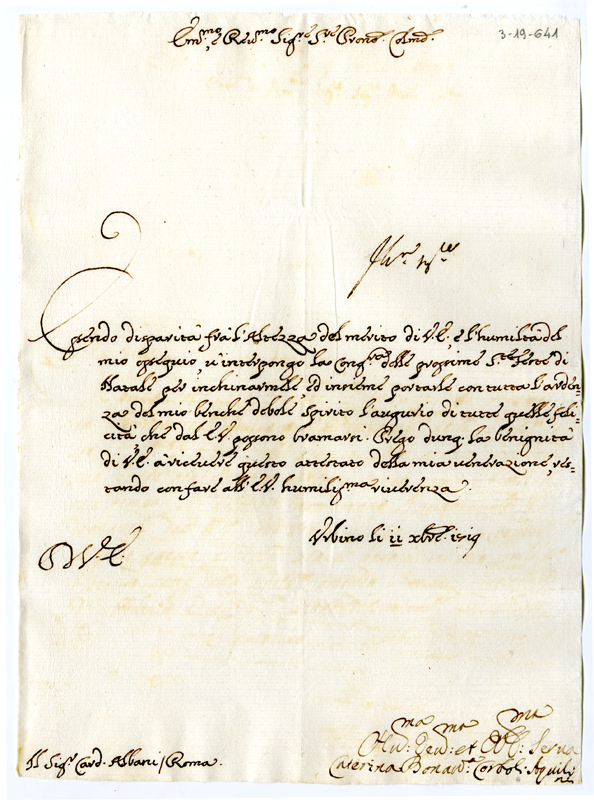 Em.mo, e Rev.mo Sig.re S.re Pron.e Colmo.
3-19-641
Essendo disparità frà l'Altezza del merito di V.E., e l'humiltà del
mio ossequio, v'interpongo la Cong.ra delle prossime S.te feste di
Natale per inchinarmele, ed insieme portarle con tutta l'arden=
za del mio benche debole spirito l'augurio di tutte quelle feli=
cità, che dall'E.V. possono bramarsi. Prego dunq. la benignità
di V.E. à ricevere questo attestato della mia venerazione, res=
tando con fare all'E.V. humiliss.ma riverenza.
Urbino li 11 xbre. 1719
D V.E.
Hu:ma Dev:ma et Obb:ma Serva
Caterina Bonav.ra Corboli Aquilini
Il Sig.r Card. Albani / Roma.